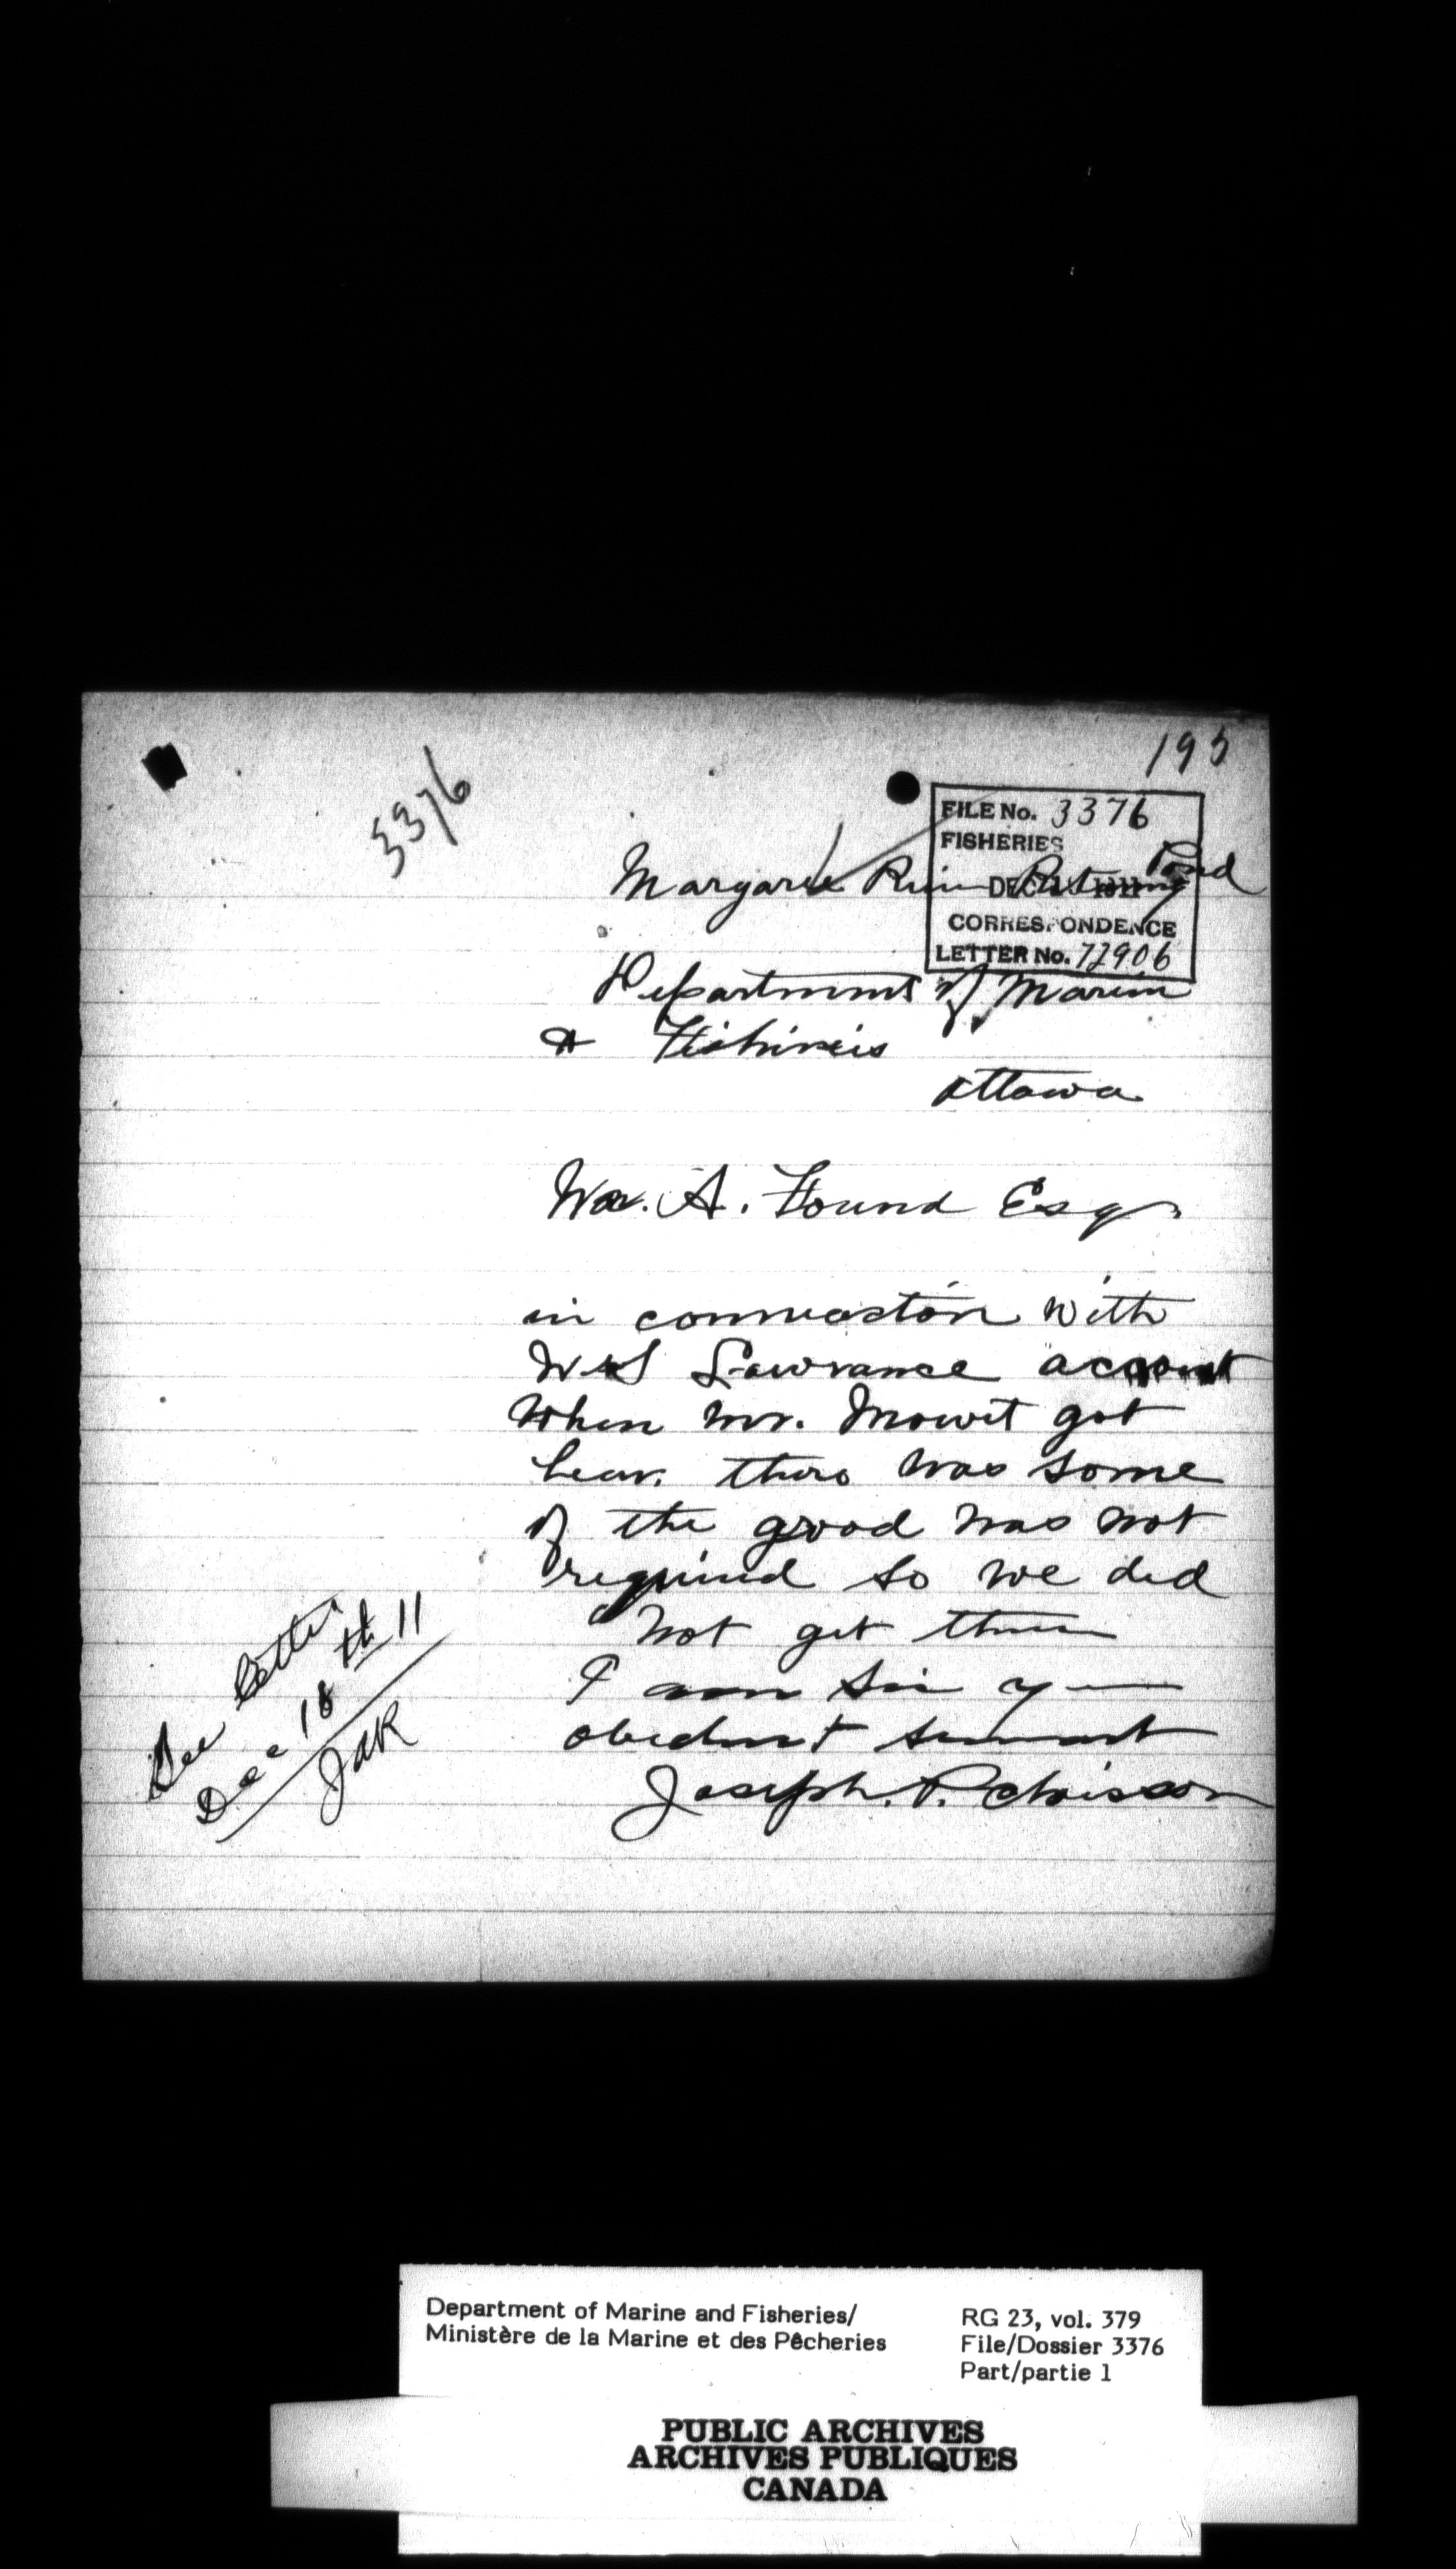 195
3376
FILE No. 3376
FISHERIES
DEC 1911
CORRESPONDENCE
LETTER No. 72906
Margaree Retaining Pond
Department of Marin
& Fisheries
Ottawa
Wm. A. Found Esq
in connection with
Lawrance account
When Mr. Mowet got
hear there was some
of the good was not
required so we did
not get them
I am Sir y
obedient servant
Joseph. P. Chiasson
See letter
Dec 18th 11
JAR
Department of Marine and Fisheries/
Ministère de la Marine et des Pêcheries
RG 23, vol. 379
File/Dossier 3376
Part/partie 1
PUBLIC ARCHIVES
ARCHIVES PUBLIQUES
CANADA